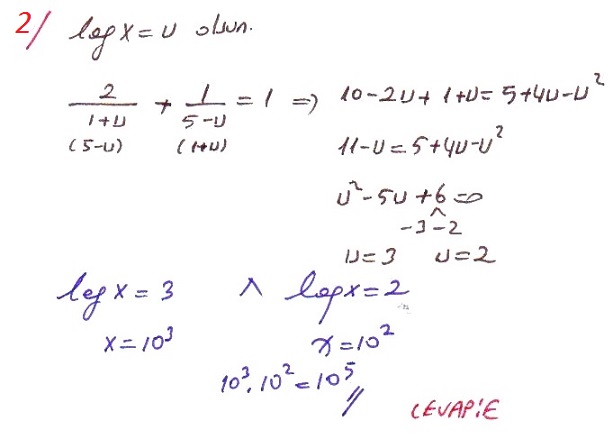 2/ log x = u olsun.
2/(1+u) + 1/(5-u) = 1 => 10-2u+1+u=5+4u-u²
(5-u) (1+u) 11-u=5+4u-u²
u²-5u+6=0
-3 -2
u=3 u=2
log x = 3 ∧ log x = 2
x=10³ x=10²
10³.10²=10⁵ //
CEVAP:E